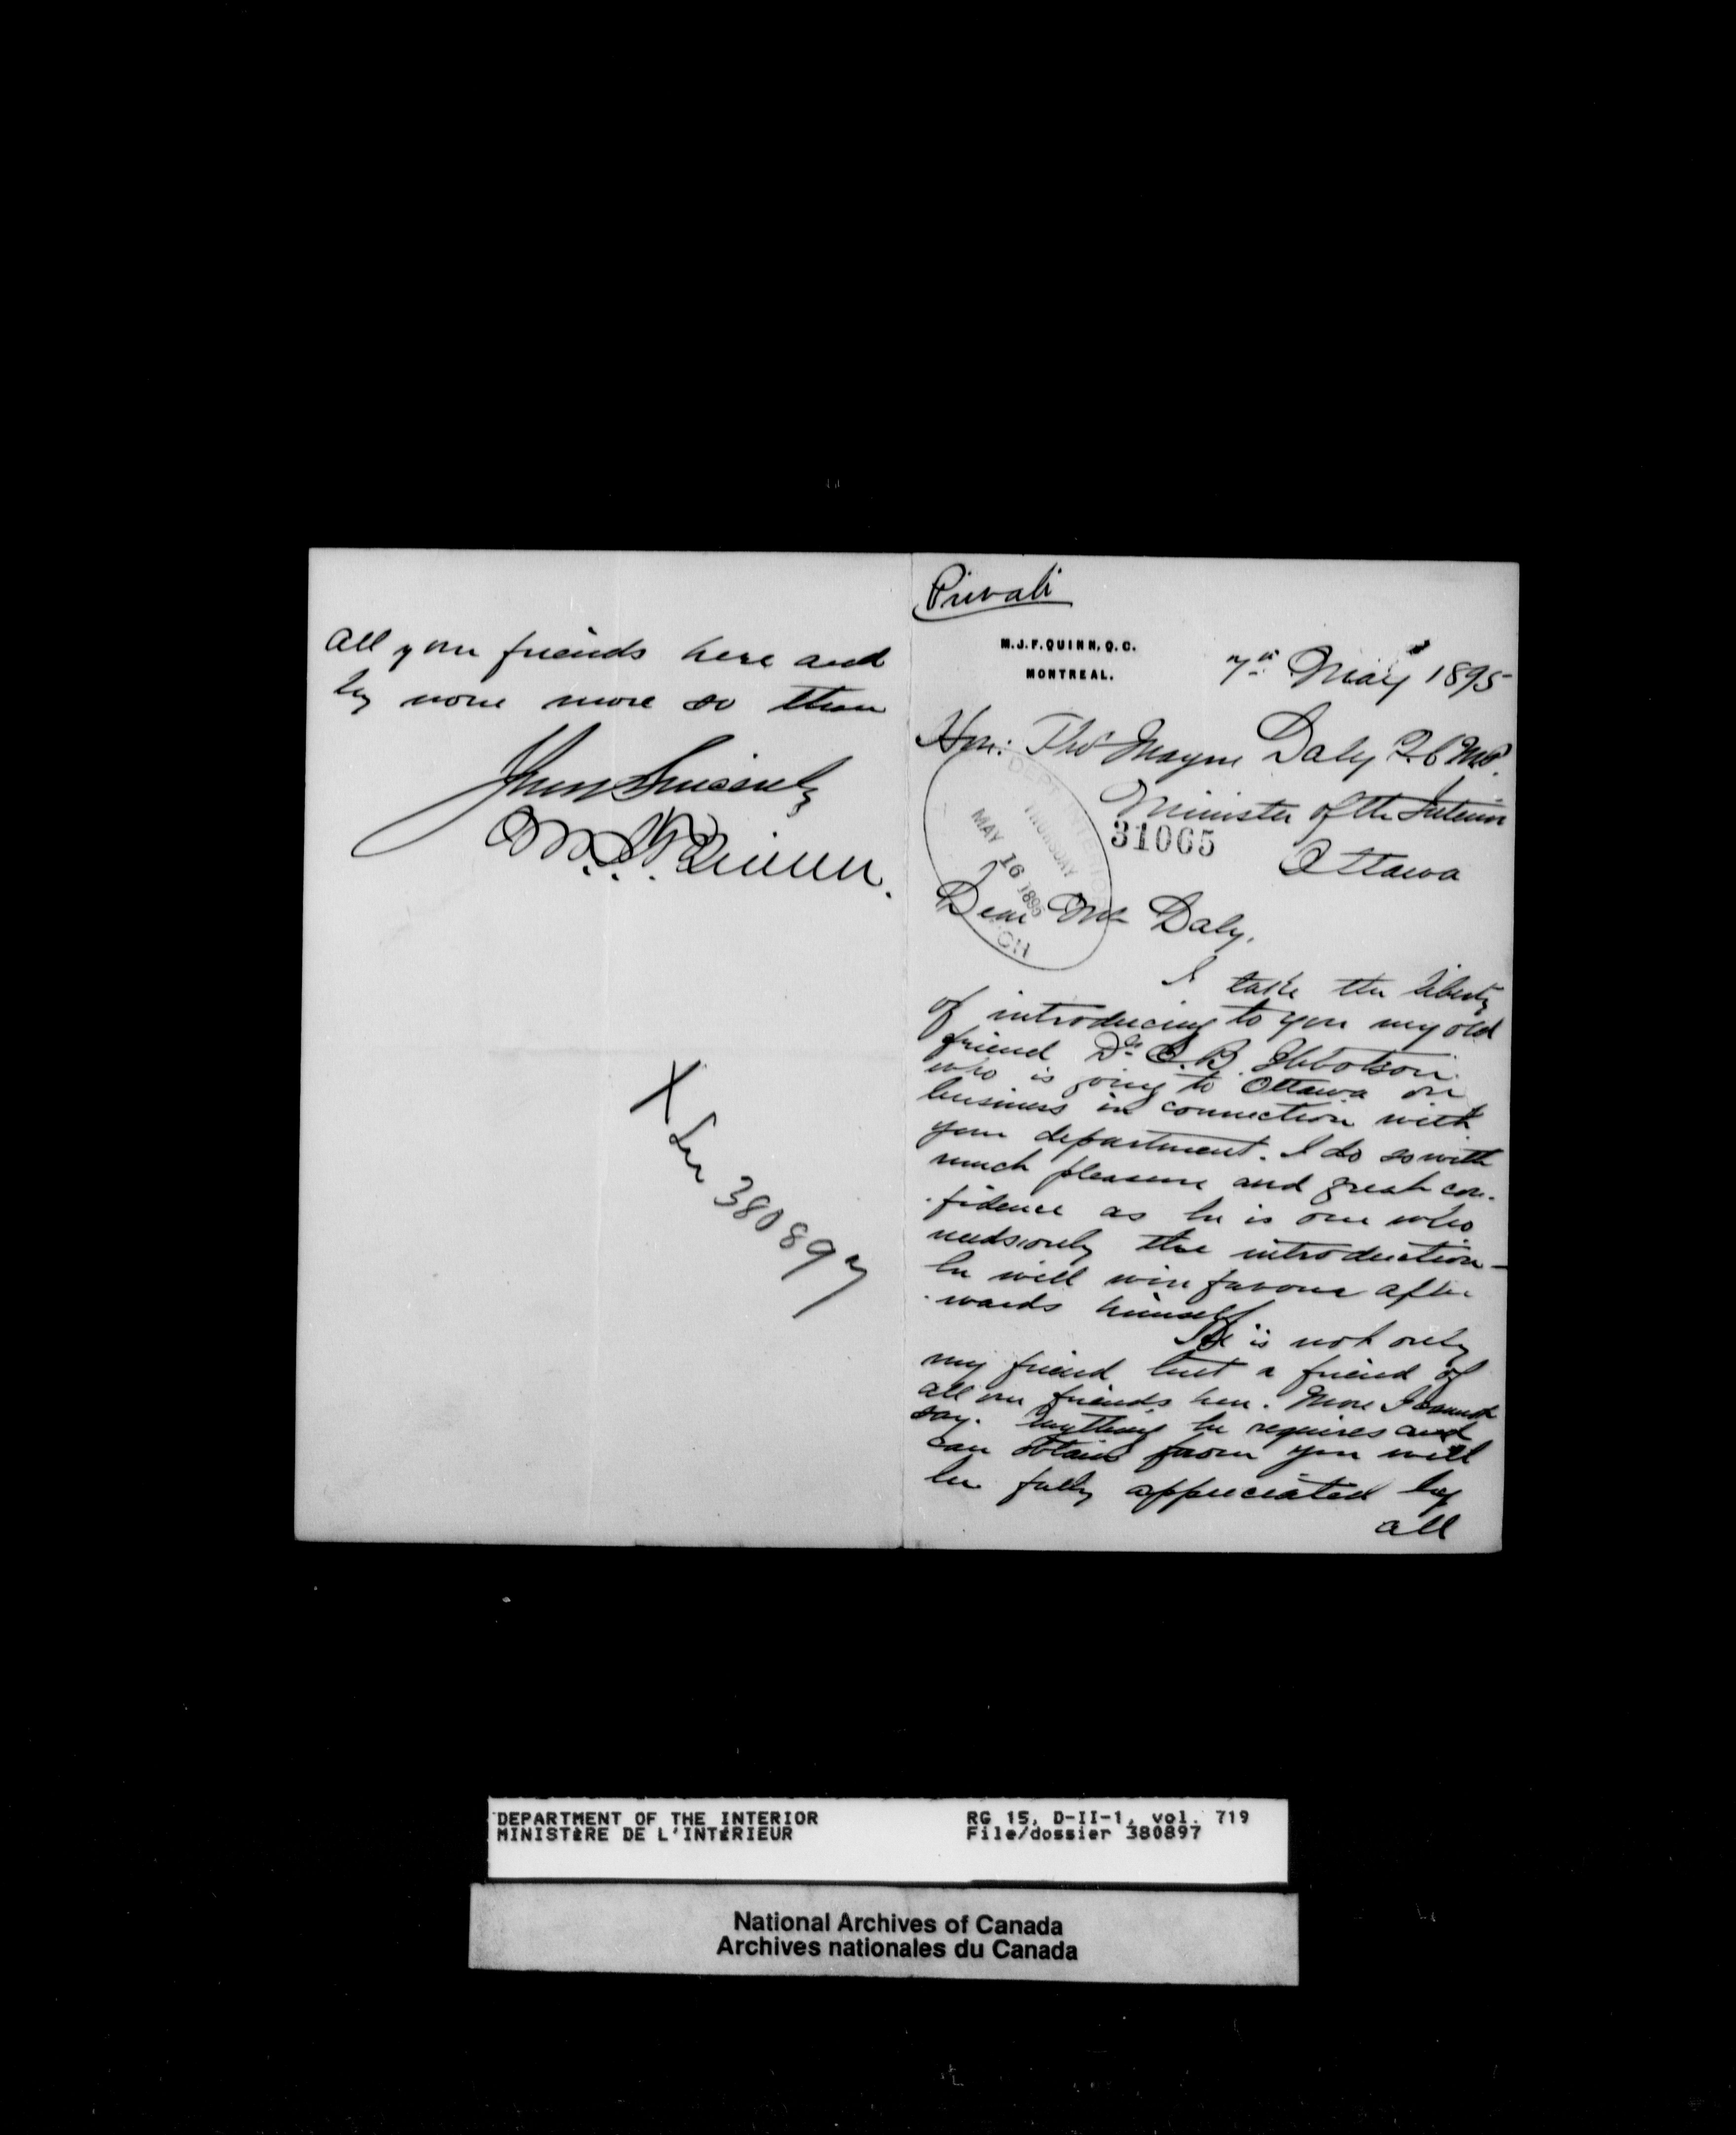 Private
M.J.F. QUINN, Q.C.
MONTREAL.
7th May 1895
Hon: Thos Mayne Daly Q.C. M.P.
Minister of the Interior
31065
Ottawa
DEPT INTERIOR
THURSDAY
MAY 16 1895
Dear Mr Daly,
I take the liberty
of introducing to you my old
friend Dr. B. Ibbotson.
who is going to Ottawa on
business in connection with
your department. I do so with
much pleasure and great con-
-fidence as he is one who
needs only the introduction -
he will win favour after
-wards himself
He is not only
my friend but a friend of
all our friends here. More I cannot
say. Anything he requires and
can obtain from you will
be fully appreciated by
all
all your friends here and
by none more so than
Yours Sincerely
M.J.F. Quinn.
X
380897
DEPARTMENT OF THE INTERIOR
MINISTÈRE DE L'INTÉRIEUR
RG 15, D-II-1, vol. 719
File/dossier 380897
National Archives of Canada
Archives nationales du Canada